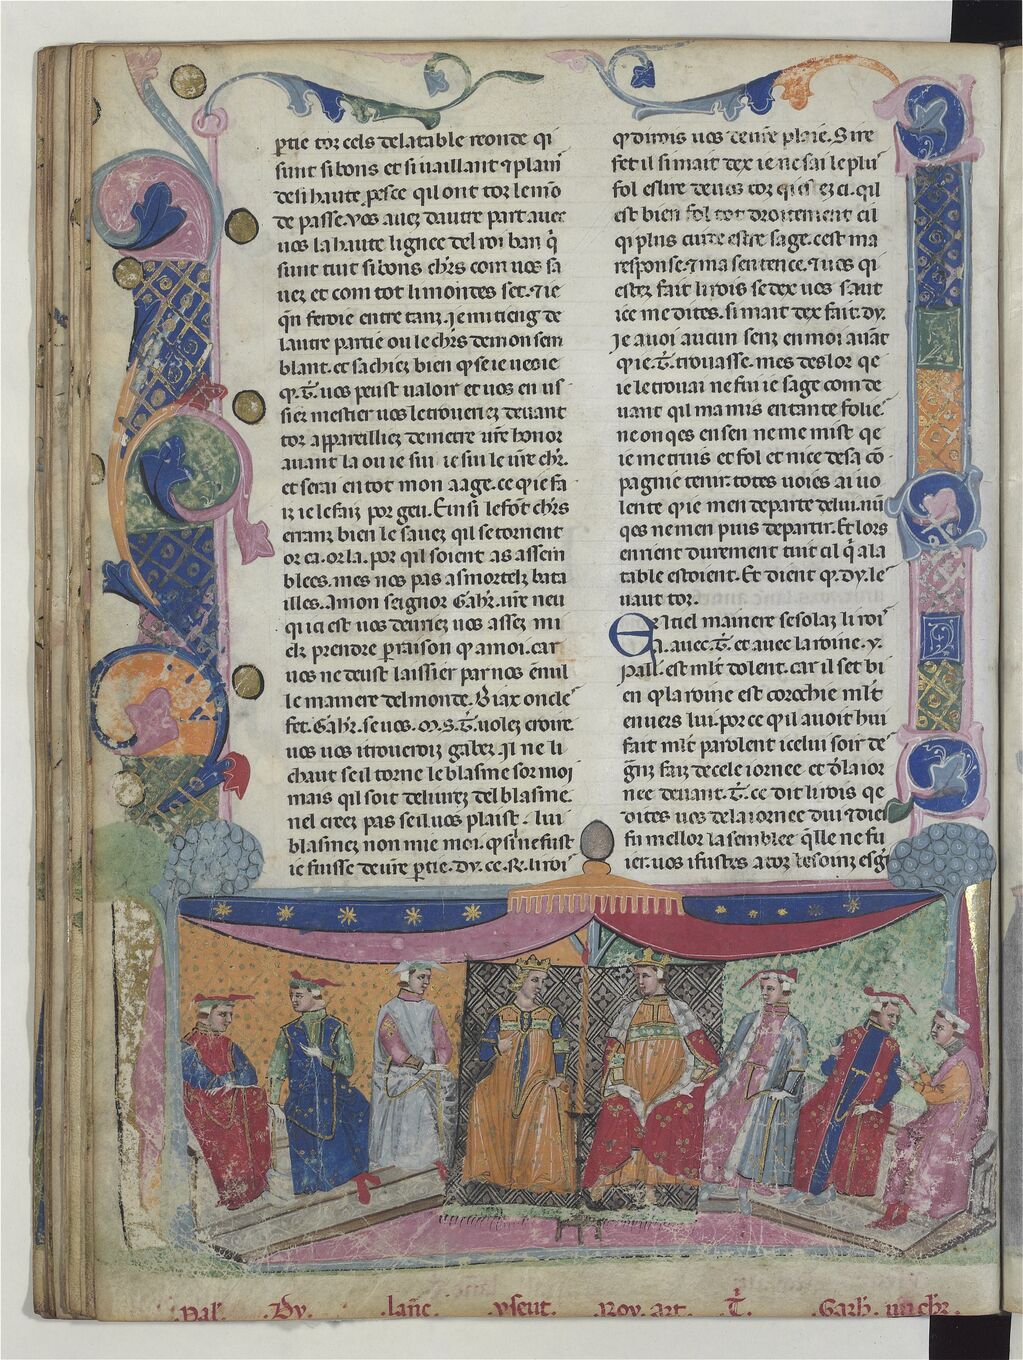 ptie tor cels delatable reonde qi
sunt sibons et si uaillant ⁊ plain
desi haute pesce qil ont tor lemo
de passe. vos auez dautre part auec
uos la haute lignee del roi ban q̇
sunt tuit sibons chrs com uos sa
uez et com tot li mondes set. ⁊ ie
qn feroie entre tanz. je mi tieng de
lautre partie ou le chrs de mon sem
blant. et sachiez bien q̇ se ie ueoie
q̇. T̃. uos peust ualoir et uos en us
siez mestier uos le troueriez deuant
toz appareilliez demetre ur̃e honor
auant la ou ie sui ie sui le ur̃e chr̃.
et serai en tot mon aage. ce que fa
iz ie le faiz por geu. Einsi le font chr̃s
erranz bien le sauez qil se tornent
or ca. or la. por qil soient as assem
blees. mes nos pas as mortelz bata
illes. A mon seignor Gahr̃. ur̃e neu
qi ci est uos deuriez uos assez mi
elz prendre p̃ raison q̇ a moi. car
uos ne deust laissier par nos ẽ nul
le maniere del monde. Biax oncle
fet. Gahr̃. se uos. M. S. T̃. uolez croire
uos uos i troueroiz gabez. Il ne li
chaut se il torne le blasme sor moi
mais qil soit deliurez del blasme.
nel creez pas se il uos plaist. lui
blasmez non mie moi. q̇ si ne fust
ie fuisse de ur̃e p̃tie. Dy. ce. R. li roi
q̇ dirois uos de ur̃e plaie. Sire
fet il si mait dex ie ne sai le plu
fol eslire de uos toz qi estez ci. qil
est bien fol tot droitement cil
qi plus cuide estre sage. cest ma
response. ⁊ ma sentence. ⁊ uos qi
estez fait li rois se dex uos saut
ice me dites. si mait dex fait. Dy.
Je auoi aucun senz en moi auãt
q̇ ie. T̃. trouasse. mes des lor qe
ie le trouai ne fui ie sage com de
uant qil ma mis en tante folie
ne onqes en sen ne me mist qe
ie me truis et fol et nice de sa cõ
pagnie tenir. totes uoies ai uo
lente q̇ ie men departe de lui. nũ
qes ne men puis departir. Et lors
enrient durement tuit cil q̃ a la
table estoient. Et dient q̇. Dy. le
uant tor.
En itel maniere se solaz li roi
A. auec. T̃. et auec la roine. y.
Pall̃. est ml̃t dolent. car il set bi
en q̇ la roine est corochie ml̃t
enuers lui. por ce q̇ il auoit hui
fait ml̃t parolent icelui soir de
gñz faiz de cele iornee et d̃ la ior
nee deuant. T̃. ce dit li rois qe
dites uos de la iornee dui ⁊ diei
fu mellor lasemblee q̃lle ne fu
ier. uos i fustes a toz besoinz esḡ
Pal̃. Dy. lanc̃. yseut. Roy. art. T̃. Garh̃. un chr̃.